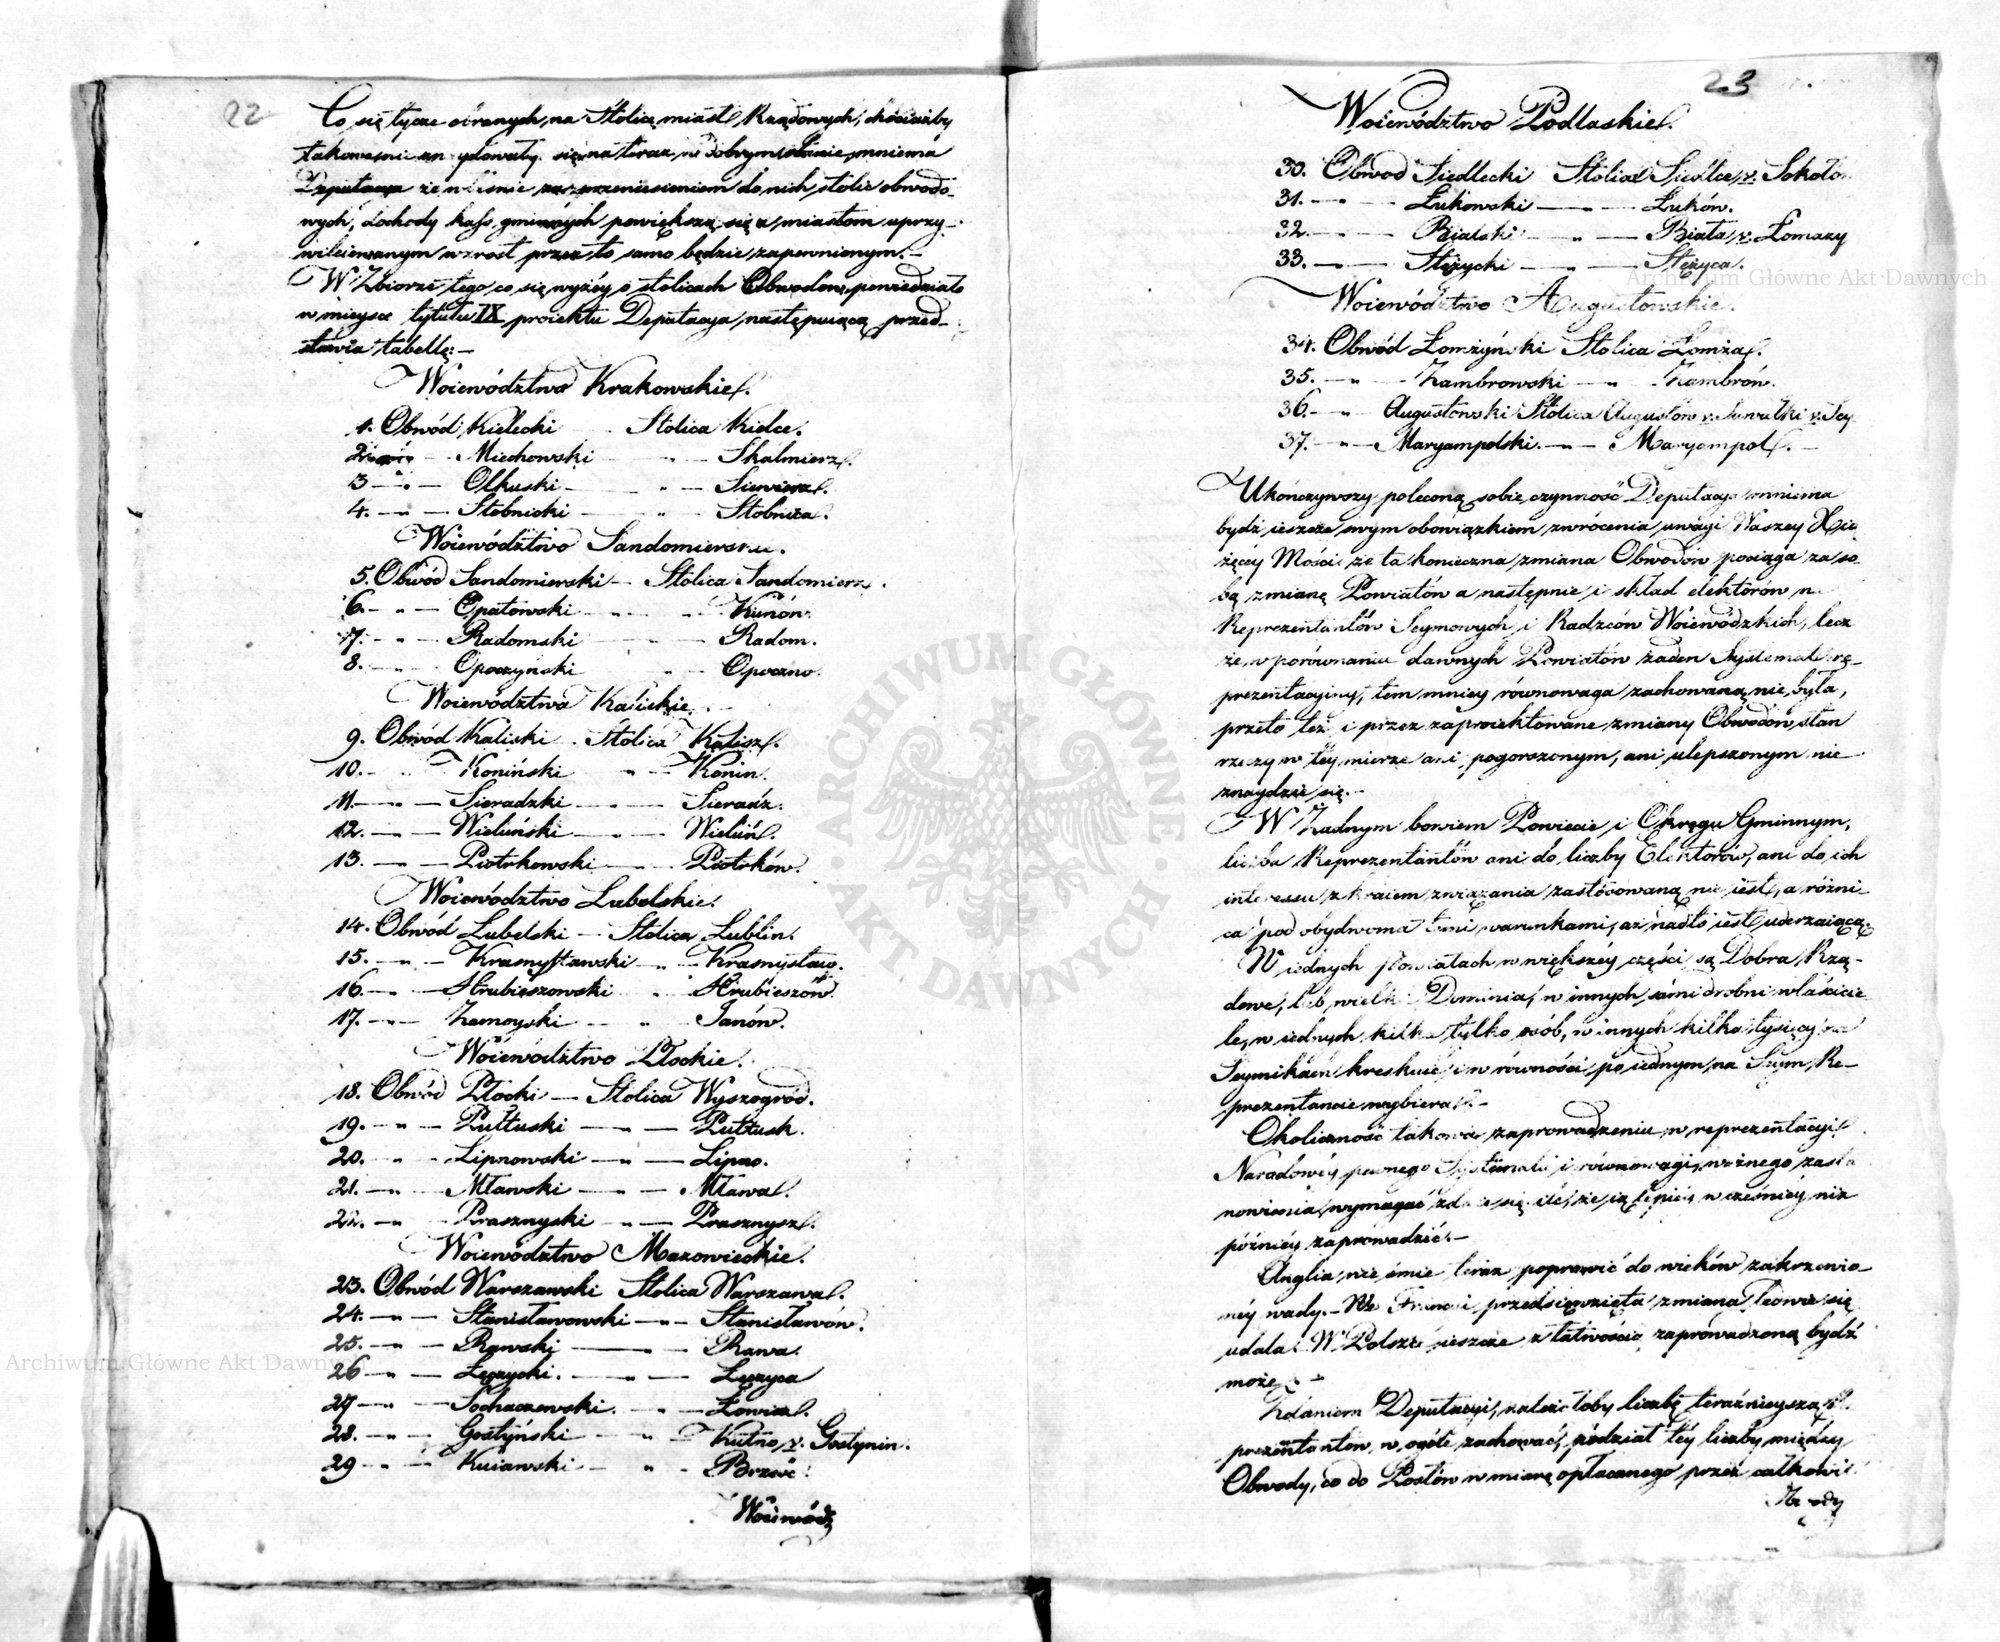 22
Co się tycze obranych na Stolicę miast Rządowych, chociażby
takowe nie znaydowały się na teraz w dobrym stanie, mniema
Deputacya że właśnie przeniesieniem do nich stolic obwodo-
wych, dochody kass gminnych powiększą się a miastom uprzy-
wileiowanym wzrost przez to samo będzie zapewnionym.-
W Zbiorze tego co się wyżéy o stolicach Obwodów powiedziało
w mieysce tytułu IX proiektu Deputacya następuiącą przed-
stawia tabellę:-
Woiewództwo Krakowskie.
1. Obwód Kielecki Stolica Kielce.
2. Miechowski " Skalmierz.
3 - " - Olkuski " Siewierz.
4. - " - Stobnicki " Stobnica.
Woiewództwo Sandomierskie.
5. Obwód Sandomierski - Stolica Sandomierz.
6. - " - Opatowski " Kunów.
7. - " - Radomski " Radom.
8. - " - Opoczyński " Opoczno.
Woiewództwo Kaliskie.
9. Obwód Kaliski Stolica Kalisz.
10. - " Koniński " - Konin.
11. - " - Sieradzki - " - Sieradz.
12. - " - Wieluński - " - Wieluń.
13. - " - Piotrkowski - " - Piotrków.
Woiewództwo Lubelskie.
14. Obwód Lubelski - Stolica Lublin.
15. - " - Krasnystawski - " - Krasnystaw.
16. - " - Hrubieszowski " - Hrubieszów.
17. - " - Zamoyski - " Janów.
Woiewództwo Płockie.
18. Obwód Płocki - Stolica Wyszogród.
19. - " - Pułtuski - " - Pułtusk.
20. - " - Lipnowski - " - Lipno.
21. - " - Mławski - " - Mława.
22. - " - Prasznyski - " - Prasznysz.
Woiewództwo Mazowieckie.
23. Obwód Warszawski Stolica Warszawa.
24. - " - Stanisławowski - " - Stanisławów.
25. - " - Rawski - Rawa.
26 - " - Łęczycki. - " - Łęczyca
27 - " - Sochaczewski. - " - Łowicz.
28. - " - Gostyński - " Kutno v. Gostynin.
29 - " - Kuiawski - " - Brześć.
Woiewódz
23
Woiewództwo Podlaskie.
30. Obwod Siedlecki Stolica Siedlce v. Sokołów
31. - " - Łukowski - " - Łuków.
32. - " - Bialski - " - Biała v. Łomazy
33. - " - Stężycki - " - Stężyca.
Woiewództwo Augustowskie.
34. Obwód Łomżyński Stolica Łomża.
35. - " - Zambrowski - " - Zambrów.
36. - " - Augustowski Stolica Augustów v. Suwałki v. Sey
37. - " - Maryampolski. - " - Maryampol.
Ukończywszy poleconą sobie czynność Deputacya mniema
bydź ieszcze swym obowiązkiem zwrócenia uwagi Waszey Xią
żęcey Mości że ta konieczna zmiana Obwodów pociąga za so-
bą zmianę Powiatów a następnie i skład elektorów na
Reprezentantów Seymowych i Radzców Woiewódzkich, lecz
że w porównaniu dawnych Powiatów żaden Systemat re-
prezentacyiny, tem mniey równowaga zachowaną nie była,
przeto też i przez zaproiektowane zmiany Obwodów stan
rzeczy w tey mierze ani pogorszonym, ani ulepszonym nie
znaydzie się.-
W Żadnym bowiem Powiecie i Okręgu Gminnym,
liczba Reprezentantów ani do liczby Elektorów, ani do ich
interessu z kraiem związania zastósowaną nie iest, a różni-
ca pod obydwoma temi warunkami, aż nadto iest uderzaiącą.
W iednych Powiatach w większéy części są Dobra Rzą-
dowe, lub wielkie Dominia, w innych sami drobni właścicie-
le, w iednych kilka tylko osób, w innych kilka tysięcy na
Seymikach kreskuie, i w równości po iednym na Seym Re-
prezentancie wybiera.-
Okoliczność takowa zaprowadzenia w reprezentacyi
Narodowéy pewnego Systematu i równowagi, ważnego zasta-
nowienia wymagać zdaie się ile, że ią lepiéy wcześniéy niż
późniéy zaprowadzić.-
Anglia, nie śmie teraz poprawić do wieków zakorzenio-
néy wady.- We Francyi przedsięwzięta zmiana ledwie się
udała. W Polszcze ieszcze z łatwością zaprowadzoną bydź
może.-
Zdaniem Deputacyi, należałoby liczbę teraźnieyszą Re-
prezentantów w ogóle zachować, podział téy liczby między
Obwody, co do Posłów w miarę opłacanego przez całkowi-
Archiwum Główne Akt Dawnych
Archiwum Główne Akt Dawnych
ARCHIWUM GŁÓWNE
AKT DAWNYCH